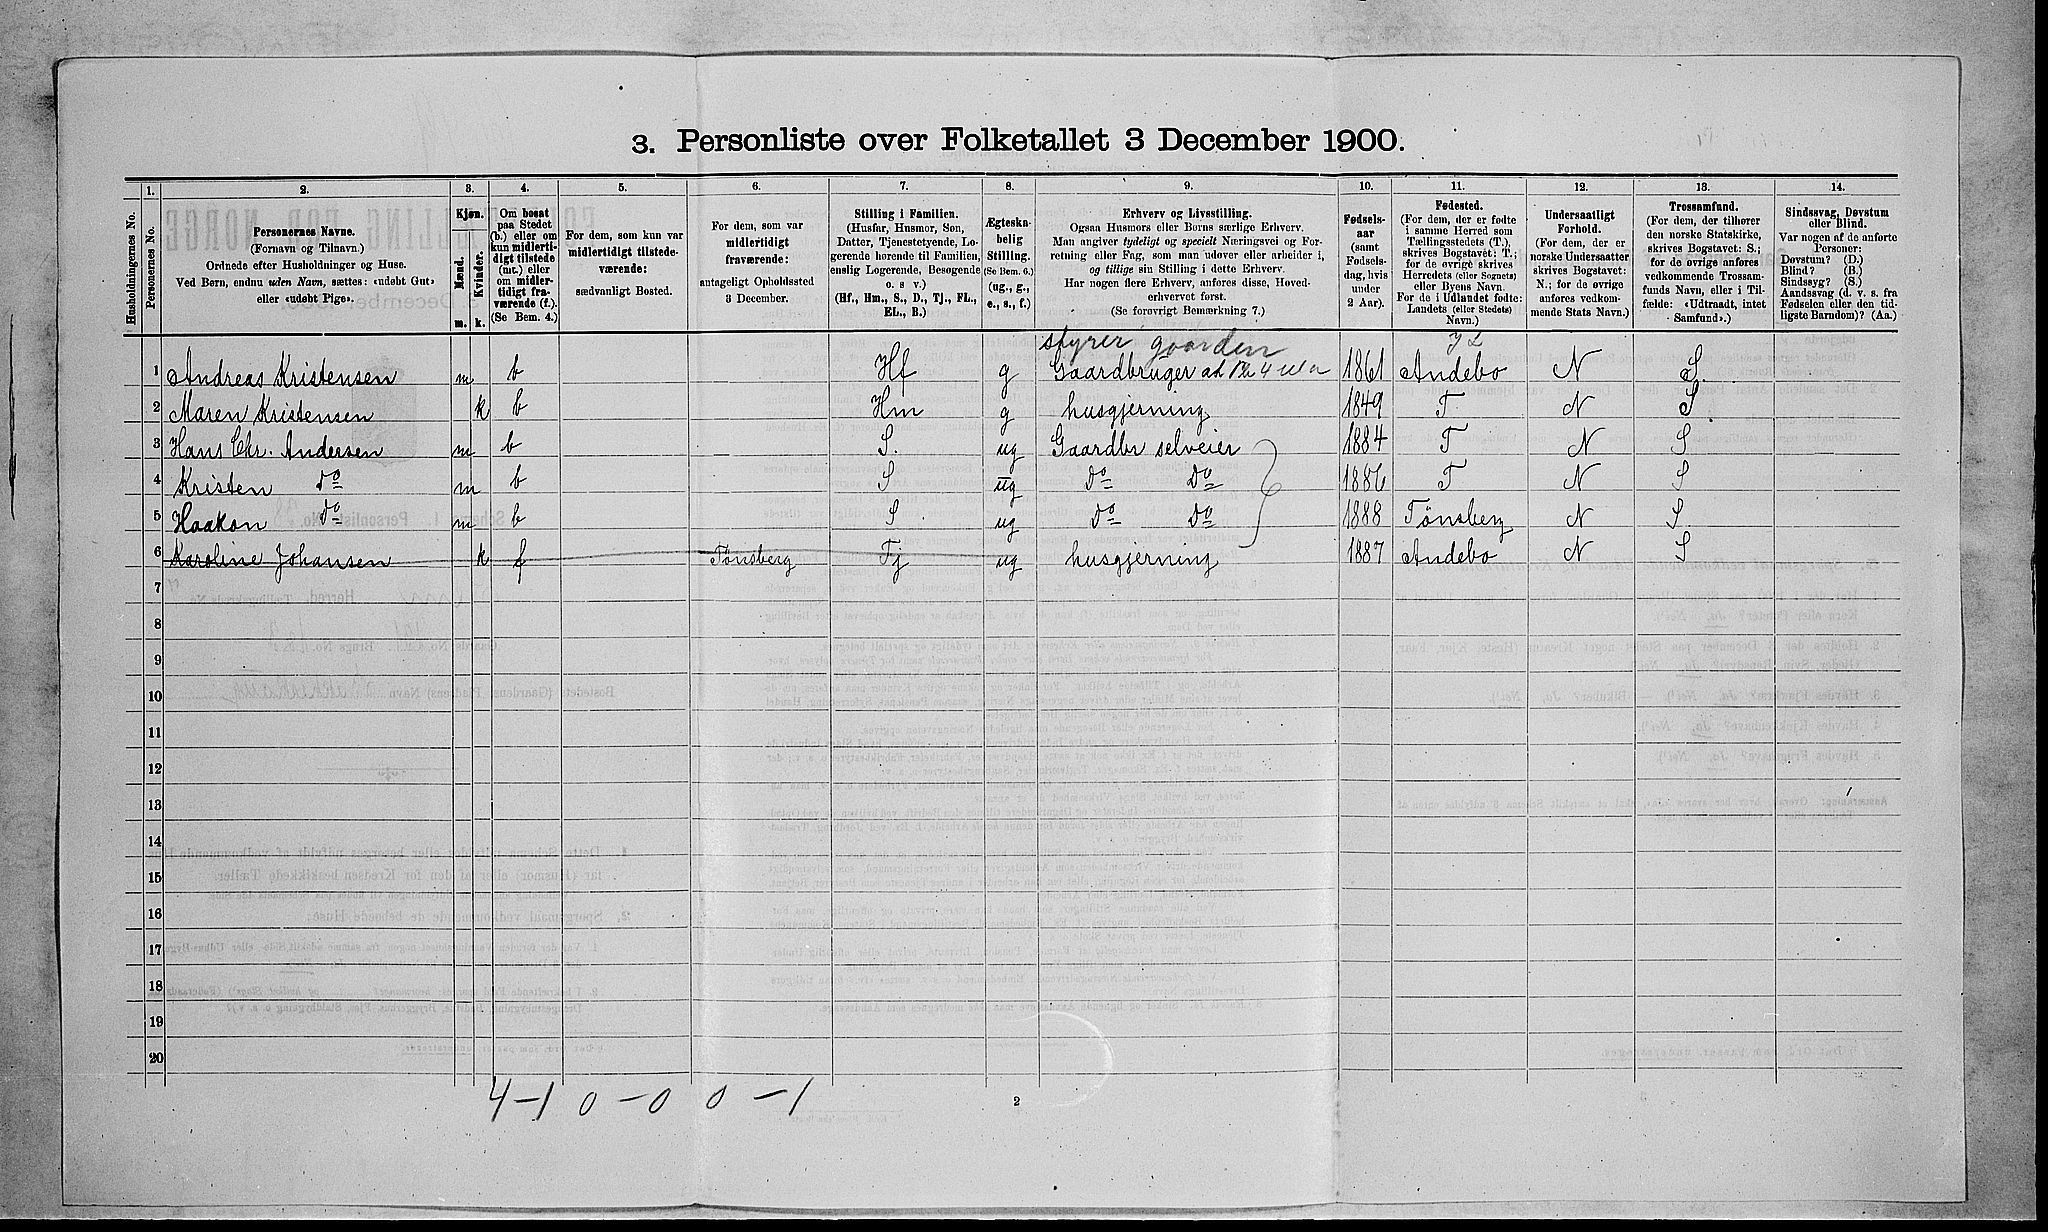 3. Personliste over Folketallet 3 December 1900.
1. 2. 3. 4. 5. 6. 7. 8. 9. 10. 11. 12. 13. 14.
Husholdningernes No.
Personernes No.
Personernes Navne.
(Fornavn og Tilnavn.)
Ordnede efter Husholdninger og Huse.
Ved Børn, endnu uden Navn, sættes: «udøbt Gut»
eller «udøbt Pige».
Kjøn.
Mænd.
Kvinder.
m. k.
Om bosat
paa Stedet
(b.) eller om
kun midlerti-
digt tilstede
(mt.) eller
om midler-
tidigt fra-
værende (f.).
(Se Bem. 4.)
For dem, som kun var
midlertidigt tilstede-
værende:
sædvanligt Bosted.
For dem, som var
midlertidigt
fraværende:
antageligt Opholdssted
3 December.
Stilling i Familien.
(Husfar, Husmor, Søn,
Datter, Tjenestetyende, Lo-
gerende hørende til Familien,
enslig Logerende, Besøgende
o. s. v.)
(Hf., Hm., S., D., Tj., FL.,
EL., B.)
Ægteska-
belig
Stilling.
(Se Bem. 6.)
(ug., g.,
e., s., f.)
Erhverv og Livsstilling.
Ogsaa Husmors eller Børns særlige Erhverv.
Man angiver tydeligt og specielt Næringsvei og For-
retning eller Fag, som man udøver eller arbeider i,
og tillige sin Stilling i dette Erhverv.
Har nogen flere Erhverv, anføres disse, Hoved-
erhvervet først.
(Se forøvrigt Bemærkning 7.)
Fødsels-
aar
(samt
Fødsels-
dag, hvis
under
2 Aar).
Fødested.
(For dem, der er fødte
i samme Herred som
Tællingsstedets (T.),
skrives Bogstavet: T.;
for de øvrige skrives
Herredets (eller Sognets)
eller Byens Navn.
For de i Udlandet fødte:
Landets (eller Stedets)
Navn.)
Undersaatligt
Forhold.
(For dem, der er
norske Undersaatter
skrives Bogstavet:
N.; for de øvrige
anføres vedkom-
mende Stats Navn.)
Trossamfund.
(For dem, der tilhører
den norske Statskirke,
skrives Bogstavet: S.;
for de øvrige anføres
vedkommende Trossam-
funds Navn, eller i Til-
fælde: «Udtraadt, intet
Samfund».)
Sindssvag, Døvstum
eller Blind.
Var nogen af de anførte
Personer:
Døvstum? (D.)
Blind? (B.)
Sindssyg? (S.)
Aandssvag (d. v. s. fra
Fødselen eller den tid-
ligste Barndom)? (Aa.)
styrer gaarden
1 Andreas Kristensen m b Hf g Gaardbruger 1861 Andebo N S.
2 Maren Kristensen k b Hm g husgjerning 1849 T N S
3 Hans Chr. Andersen m b S. ug Gaardbr selveier 1884 T N S
4 Kristen do m b S ug do do 1886 T N S
5 Haakon do m b S ug do do 1888 Tønsberg N S.
6 Karoline Johansen k f Tønsberg Tj ug husgjerning 1887 Andebo N S
7
8
9
10
11
12
13
14
15
16
17
18
19
20
4-1 0-0 0-1
2